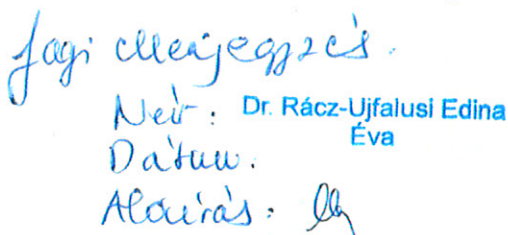 Jogi ellenjegyzés.
Név: Dr. Rácz-Ujfalusi Edina
Éva
Dátum:
Aláírás: